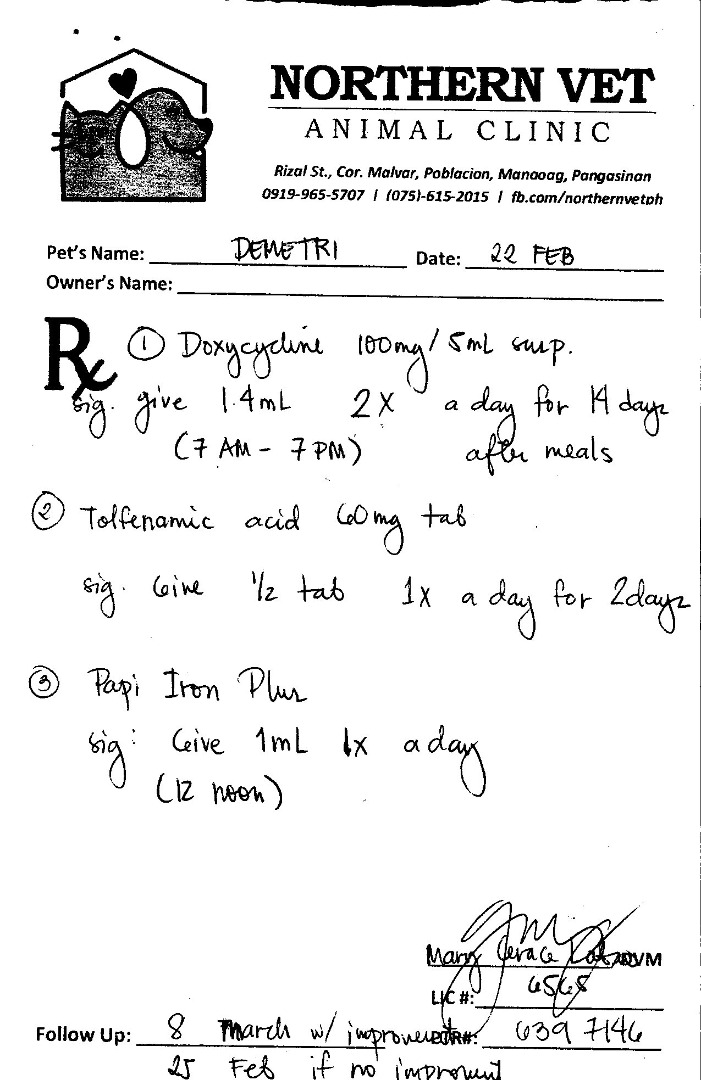 NORTHERN VET
ANIMAL CLINIC
Rizal St., Cor. Malvar, Poblacion, Manaoag, Pangasinan
0919-965-5707 | (075)-615-2015 | fb.com/northernvetph
Pet's Name: DEMETRI Date: 22 FEB
Owner's Name:
Rx ① Doxycycline 100mg/5mL susp.
sig. give 1.4mL 2x a day for 14 days
(7 AM - 7 PM) after meals
② Tolfenamic acid 60mg tab
sig. Give 1/2 tab 1x a day for 2 days
③ Papi Iron Plus
sig: Give 1mL 1x a day
(12 noon)
Mary Grace DVM
LIC #: 6568
Follow Up: 8 March w/ improvement PTR#: 639 7146
25 Feb if no improvment